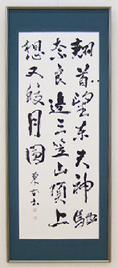 翹首望東天神馳
奈良邊三笠山頂上
想又皎月圓